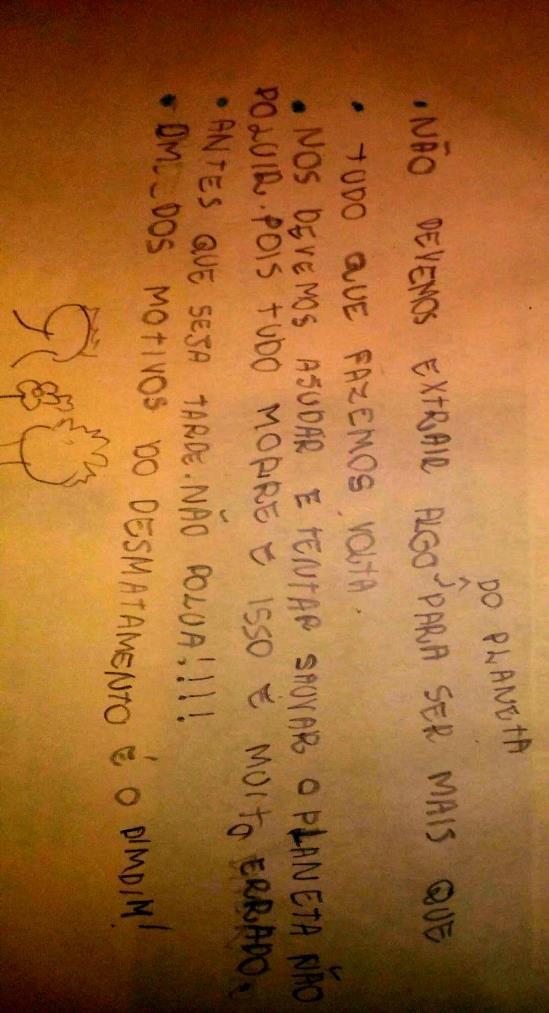 DO PLANETA
• NÃO DEVEMOS EXTRAIR ALGO PARA SER MAIS QUE
• TUDO QUE FAZEMOS VOLTA.
• NOS DEVEMOS AJUDAR E TENTAR SAUVAR O PLANETA NÃO
POLUIR. POIS TUDO MORRE E ISSO É MUITO ERRADO.
• ANTES QUE SEJA TARDE. NÃO POLUA!!!!
• DOS MOTIVOS DO DESMATAMENTO É O DIMDIM!